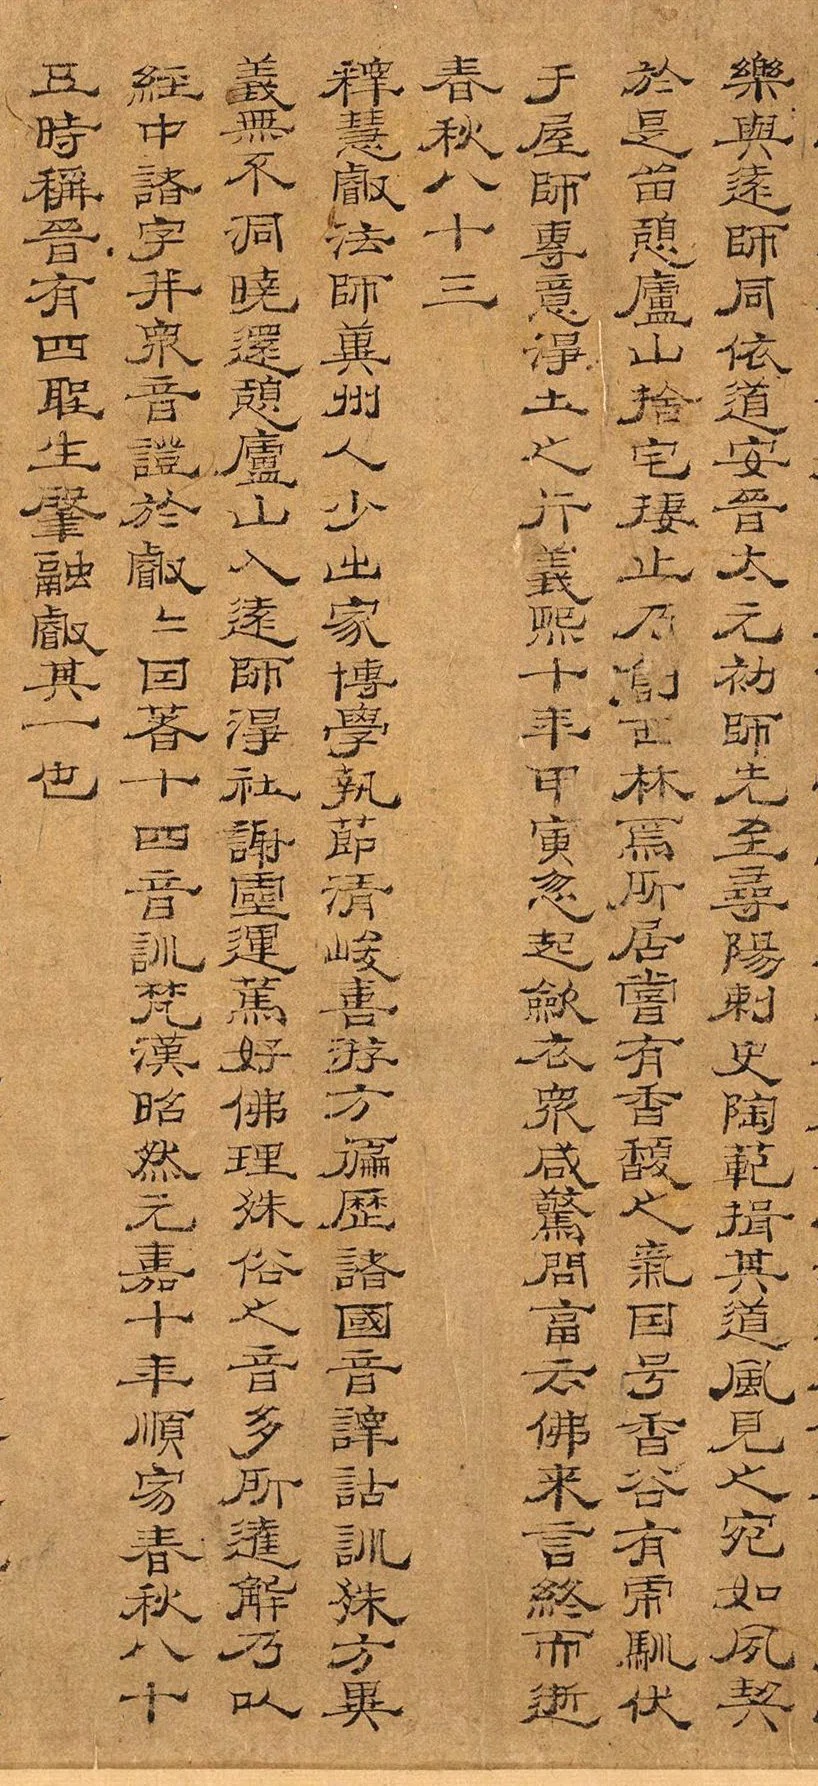 樂與遠師同依道安晉太元初師先至尋陽刺史陶範揖其道風見之宛如夙契
於是留憩廬山捨宅棲止乃創西林爲所居嘗有香馥之氣因号香谷有虎馴伏
于屋師專意淨土之行義熙十年甲寅忽起斂衣衆咸驚問富云佛来言終而逝
春秋八十三
釋慧叡法師冀州人少出家博學執節清峻喜游方徧歷諸國音譯詁訓殊方異
義無不洞曉還憩廬山入遠師淨社謝靈運篤好佛理殊俗之音多所達解乃以
經中諸字并衆音證於叡〻因著十四音訓梵漢昭然元嘉十年順寂春秋八十
五時稱晉有四聖生肇融叡其一也